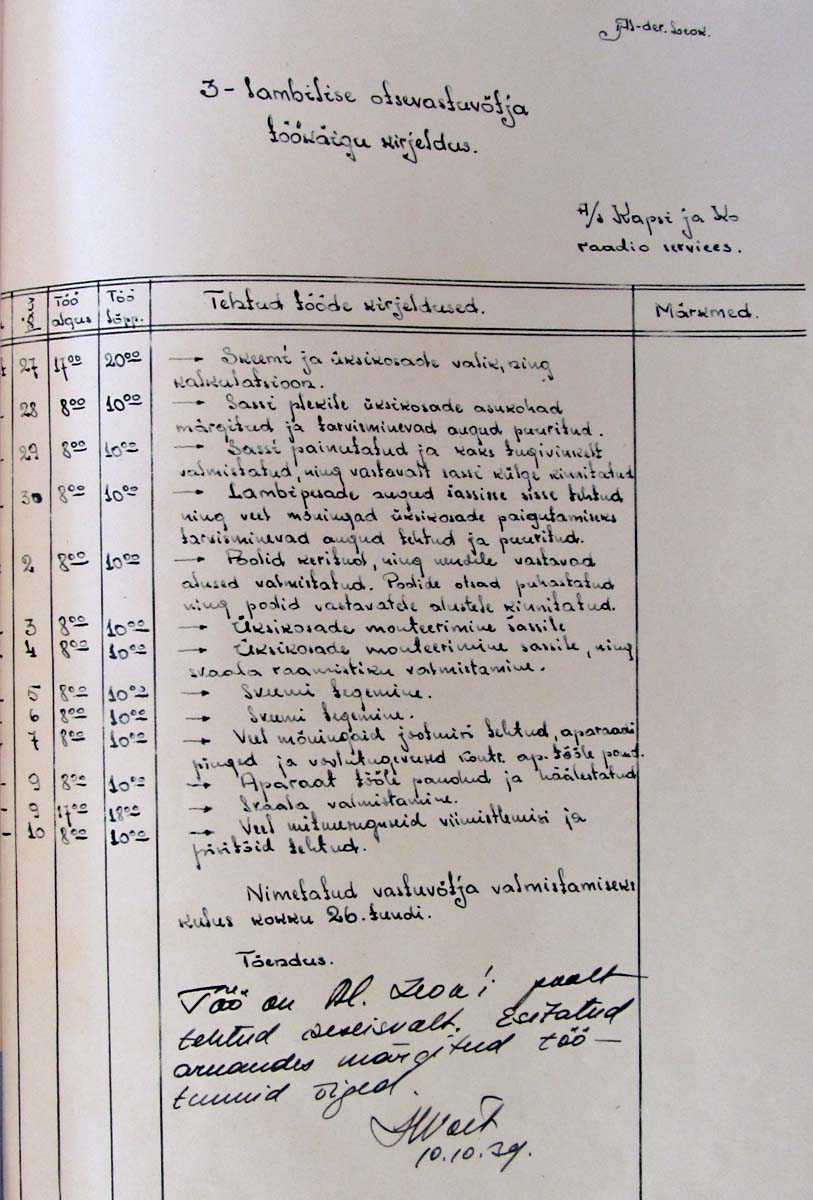 Al-der. Leok.
3 - lambilise otsevastuvõtja
töökäigu kirjeldus.
A/s Kapsi ja Ko
raadio services.
Töö Töö Tehtud tööde kirjeldused. Märkmed.
algus lõpp.
27 17⁰⁰ 20⁰⁰ → Skeemi ja üksikosade valik, ning
kalkulatsioon.
28 8⁰⁰ 10⁰⁰ → Sassi plekile üksikosade asukohad
märgitud ja tarvisminevad augud puuritud.
29 8⁰⁰ 10⁰⁰ → Sassi painutatud ja kaks tugivinkelt
valmistatud, ning vastavalt sassi külge kinnitatud
30 8⁰⁰ 10⁰⁰ → Lambipesade augud sassisse sisse tehtud
ning veel mõningad üksikosade paigutamiseks
tarvisminevad augud tehtud ja puuritud.
2 8⁰⁰ 10⁰⁰ → Poolid keritud, ning nendele vastavad
alused valmistatud. Poolide otsad puhastatud
ning poolid vastavatele alustele kinnitatud.
3 8⁰⁰ 10⁰⁰ → Üksikosade monteerimine sassile
4 8⁰⁰ 10⁰⁰ → Üksikosade monteerimine sassile, ning
skaala raamistiku valmistamine.
5 8⁰⁰ 10⁰⁰ → Skeemi tegemine.
6 8⁰⁰ 10⁰⁰ → Skeemi tegemine.
7 8⁰⁰ 10⁰⁰ → Veel mõningaid jootmisi tehtud, aparaadi
pinged ja voolutugevused kontr. ap. tööle pand.
9 8⁰⁰ 10⁰⁰ → Aparaat tööle pandud ja häälestatud
9 17⁰⁰ 18⁰⁰ → Skaala valmistamine.
10 8⁰⁰ 10⁰⁰ → Veel mitmesuguseid viimistlemisi ja
pisitöid tehtud.
Nimetatud vastuvõtja valmistamiseks
kulus kokku 26. tundi.
Tõendus.
Töö on Al. Leok'i poolt
tehtud iseseisvalt. Esitatud
aruandes märgitud töö-
tunnid õiged.
10.10.39.